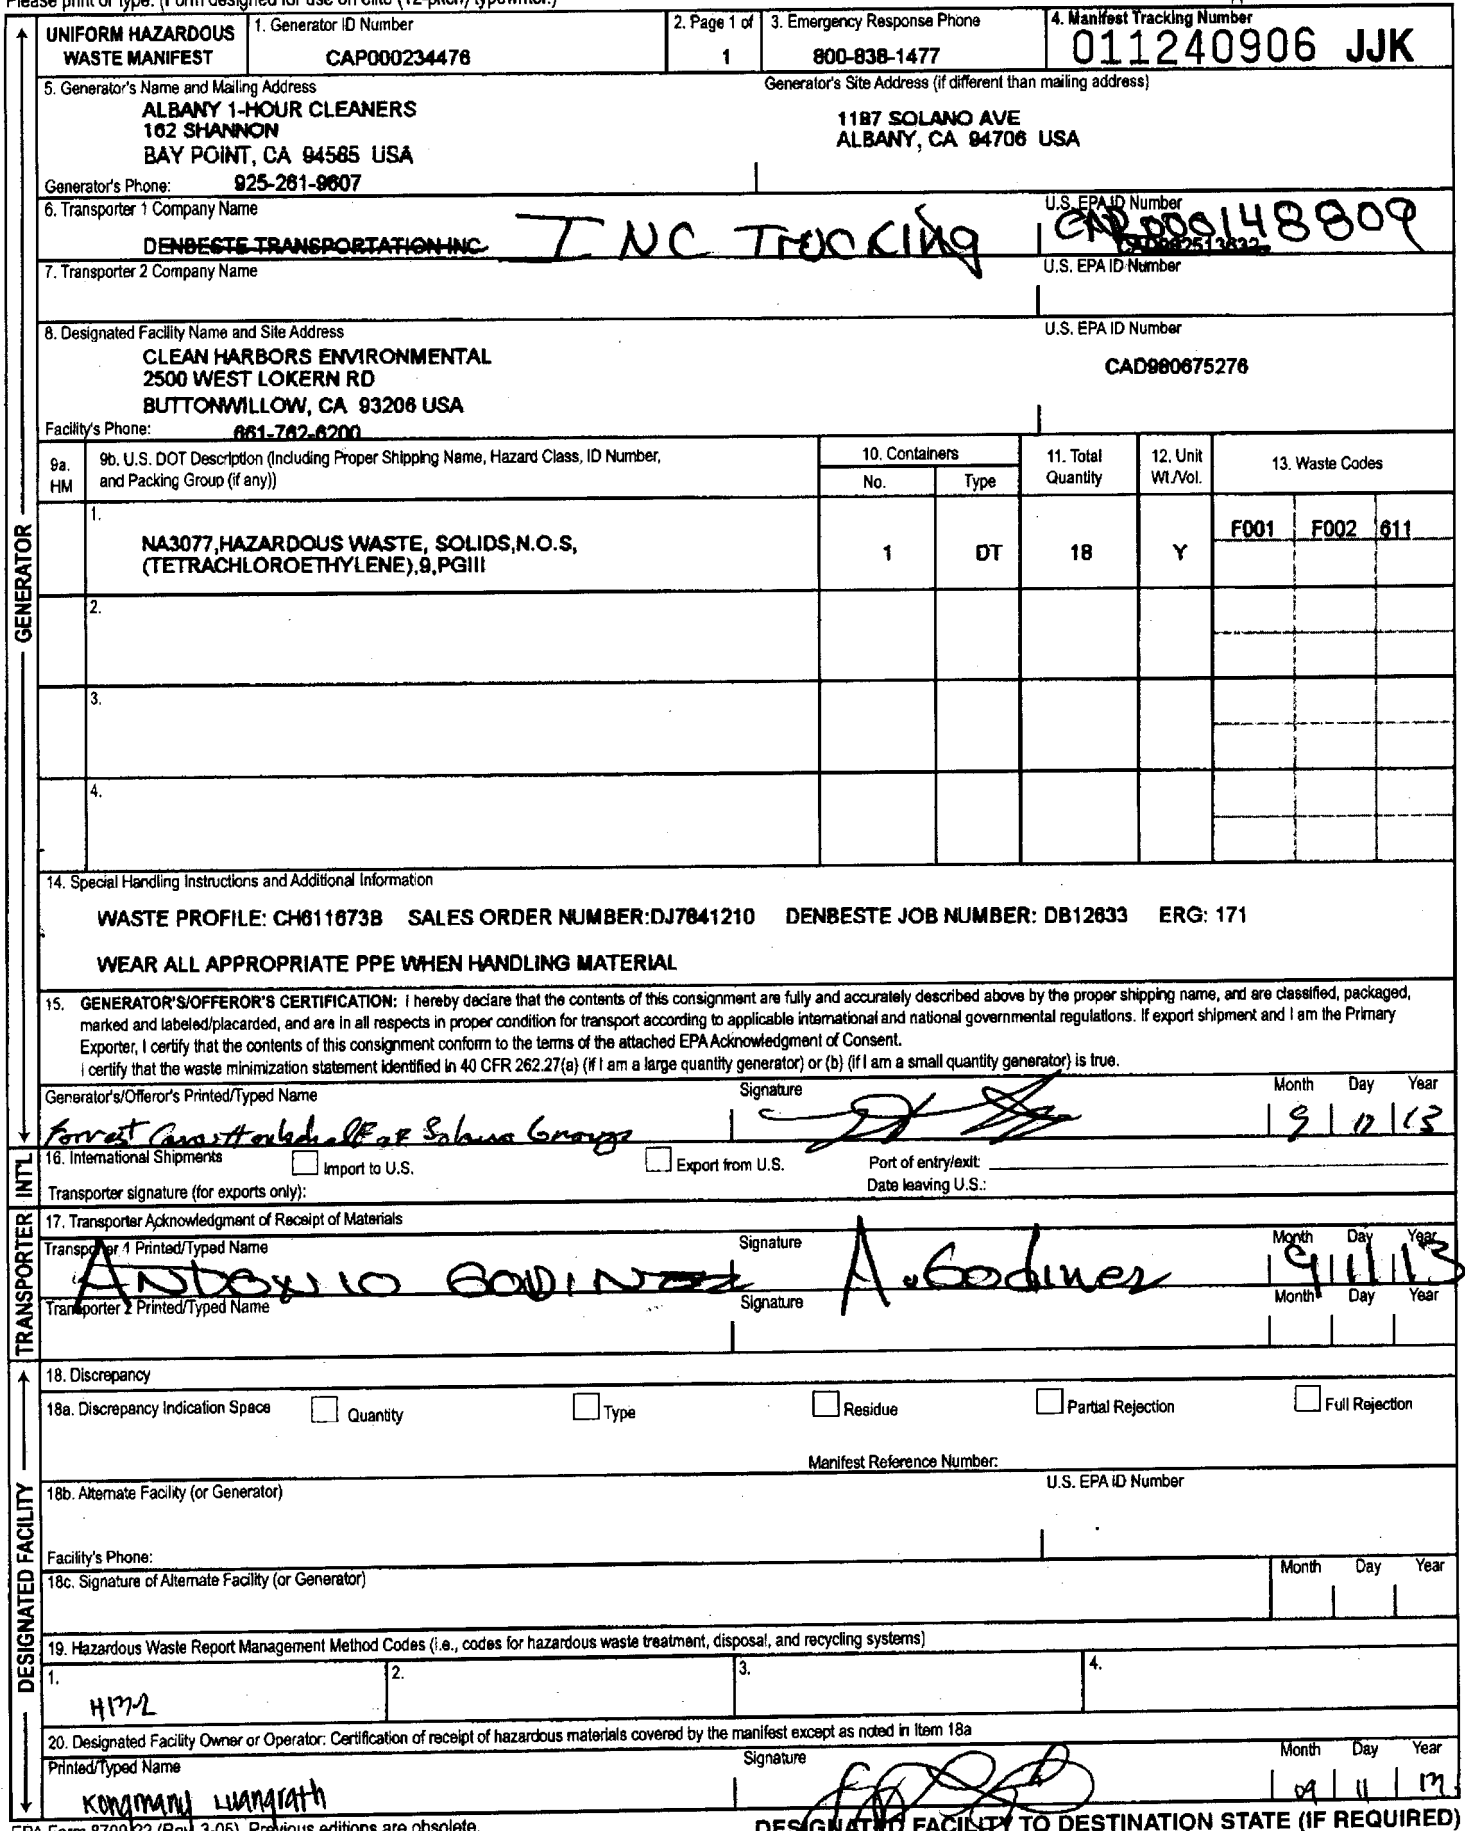 Please print or type. (Form designed for use on elite (12-pitch) typewriter.)
UNIFORM HAZARDOUS WASTE MANIFEST
1. Generator ID Number
CAP000234476
2. Page 1 of
1
3. Emergency Response Phone
800-838-1477
4. Manifest Tracking Number
011240906 JJK
5. Generator's Name and Mailing Address
ALBANY 1-HOUR CLEANERS
162 SHANNON
BAY POINT, CA 94565 USA
Generator's Phone: 925-261-9607
Generator's Site Address (if different than mailing address)
1187 SOLANO AVE
ALBANY, CA 94706 USA
6. Transporter 1 Company Name
DENBESTE TRANSPORTATION INC
INC Trucking
U.S. EPA ID Number
CAR000148809
7. Transporter 2 Company Name
U.S. EPA ID Number
8. Designated Facility Name and Site Address
CLEAN HARBORS ENVIRONMENTAL
2500 WEST LOKERN RD
BUTTONWILLOW, CA 93206 USA
Facility's Phone: 661-762-6200
U.S. EPA ID Number
CAD980675276
9a. HM
9b. U.S. DOT Description (Including Proper Shipping Name, Hazard Class, ID Number, and Packing Group (if any))
10. Containers
No.
Type
11. Total Quantity
12. Unit Wt./Vol.
13. Waste Codes
GENERATOR
1.
NA3077,HAZARDOUS WASTE, SOLIDS,N.O.S,
(TETRACHLOROETHYLENE),9,PGIII
1 DT 18 Y
F001 F002 611
2.
3.
4.
14. Special Handling Instructions and Additional Information
WASTE PROFILE: CH611673B SALES ORDER NUMBER:DJ7841210 DENBESTE JOB NUMBER: DB12633 ERG: 171
WEAR ALL APPROPRIATE PPE WHEN HANDLING MATERIAL
15. GENERATOR'S/OFFEROR'S CERTIFICATION: I hereby declare that the contents of this consignment are fully and accurately described above by the proper shipping name, and are classified, packaged,
marked and labeled/placarded, and are in all respects in proper condition for transport according to applicable international and national governmental regulations. If export shipment and I am the Primary
Exporter, I certify that the contents of this consignment conform to the terms of the attached EPA Acknowledgment of Consent.
I certify that the waste minimization statement identified in 40 CFR 262.27(a) (if I am a large quantity generator) or (b) (if I am a small quantity generator) is true.
Generator's/Offeror's Printed/Typed Name
Signature
Month Day Year
Forrest
9 13
INT'L
16. International Shipments
Import to U.S.
Export from U.S.
Port of entry/exit:
Transporter signature (for exports only):
Date leaving U.S.:
TRANSPORTER
17. Transporter Acknowledgment of Receipt of Materials
Transporter 1 Printed/Typed Name
Signature
Month Day Year
ANTONIO GODINEZ
A. Godinez
9 11 13
Transporter 2 Printed/Typed Name
Signature
Month Day Year
DESIGNATED FACILITY
18. Discrepancy
18a. Discrepancy Indication Space
Quantity
Type
Residue
Partial Rejection
Full Rejection
Manifest Reference Number:
18b. Alternate Facility (or Generator)
U.S. EPA ID Number
Facility's Phone:
18c. Signature of Alternate Facility (or Generator)
Month Day Year
19. Hazardous Waste Report Management Method Codes (i.e., codes for hazardous waste treatment, disposal, and recycling systems)
1.
H132
2.
3.
4.
20. Designated Facility Owner or Operator: Certification of receipt of hazardous materials covered by the manifest except as noted in Item 18a
Printed/Typed Name
Signature
Month Day Year
Kongmany Luangrath
09 11 13
EPA Form 8700-22 (Rev. 3-05) Previous editions are obsolete.
DESIGNATED FACILITY TO DESTINATION STATE (IF REQUIRED)